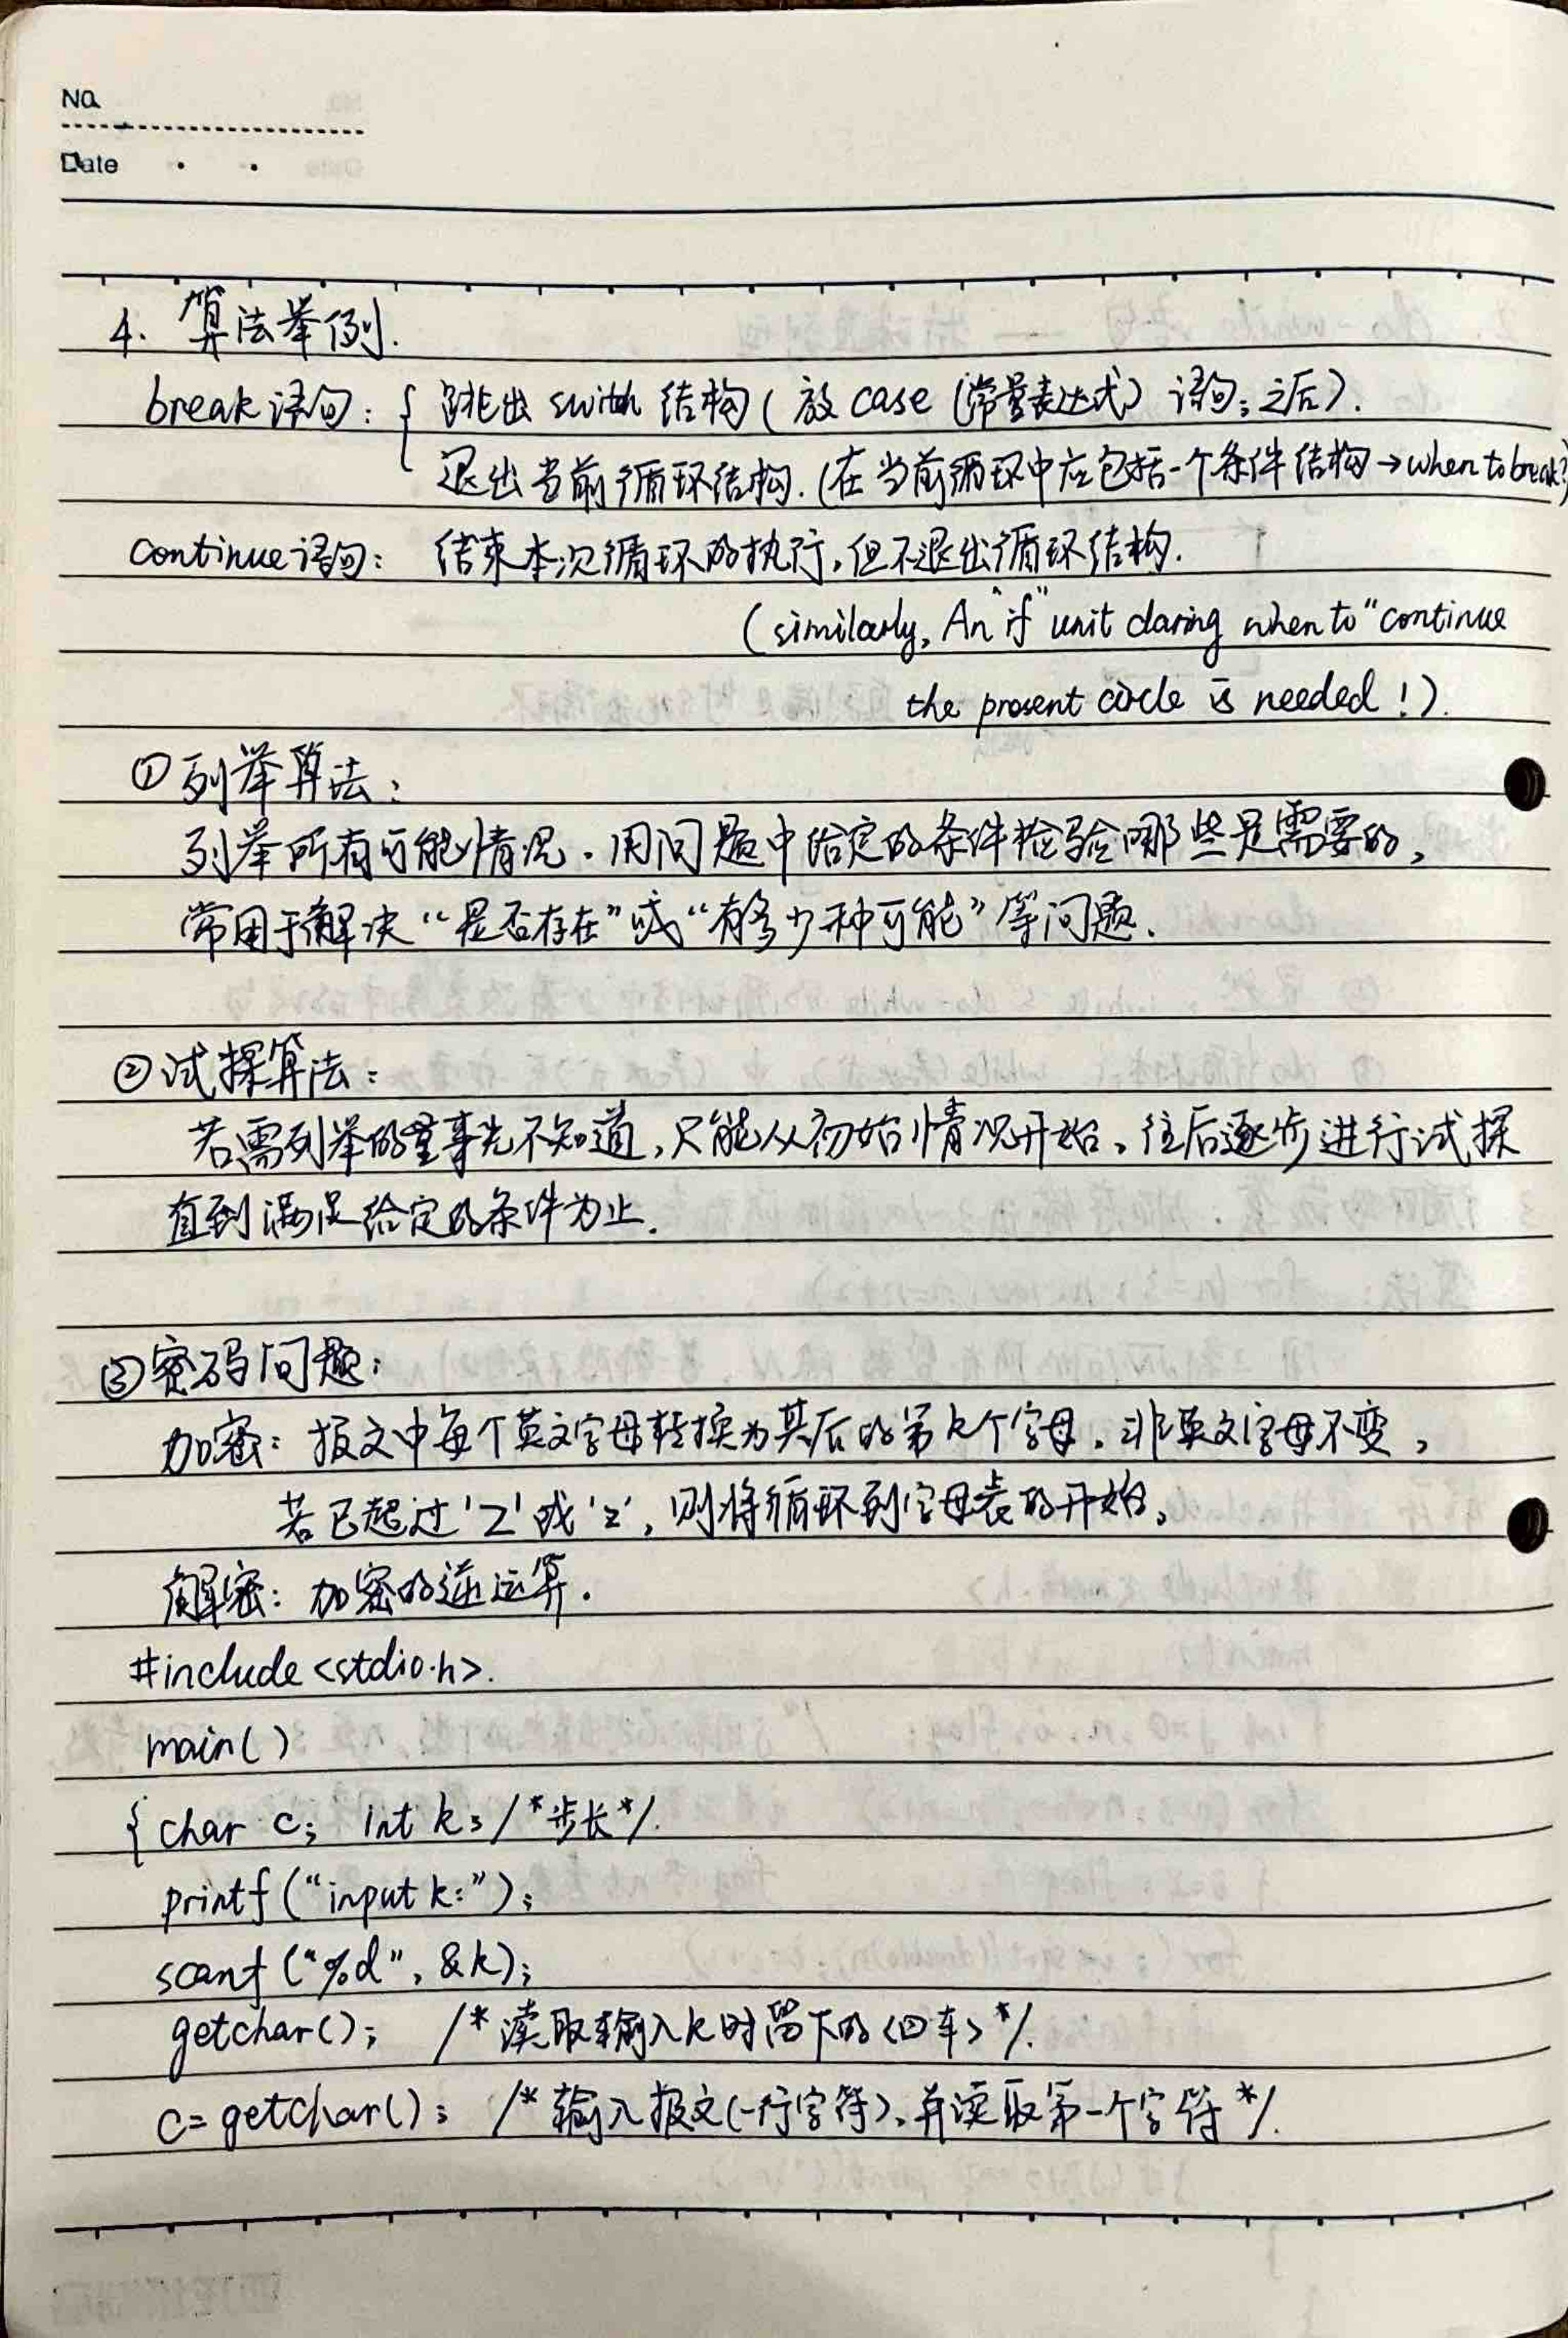 No.
Date
4. 算法举例.
break语句: { 跳出 swith 结构 ( 放 case (常量表达式) 语句; 之后).
退出当前循环结构. (在当前循环中应包括一个条件结构→when to break?)
continue语句: 结束本次循环的执行,但不退出循环结构.
(similarly, An "if" unit claring when to "continue
the present circle is needed !).
①列举算法:
列举所有可能情况.用问题中给定的条件检验哪些是需要的,
常用于解决“是否存在”或“有多少种可能”等问题.
②试探算法:
若需列举的量事先不知道,只能从初始情况开始,往后逐步进行试探
直到满足给定的条件为止.
③密码问题:
加密: 报文中每个英文字母转换为其后的第k个字母,非英文字母不变,
若已超过'Z'或'z',则将循环到字母表的开始,
解密: 加密的逆运算.
#include <stdio.h>.
main()
{ char c; int k; /*步长*/.
printf("input k:");
scanf ("%d", &k);
getchar(); /*读取输入k时留下的<回车>*/.
c=getchar(); /*输入报文(一行字符),并读取第一个字符*/.